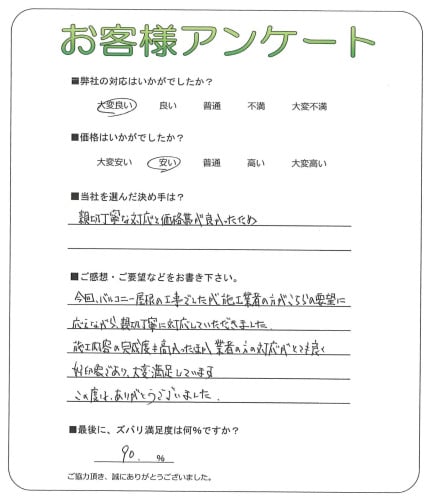 お客様アンケート
■弊社の対応はいかがでしたか？
大変良い　良い　普通　不満　大変不満
■価格はいかがでしたか？
大変安い　安い　普通　高い　大変高い
■当社を選んだ決め手は？
親切丁寧な対応と価格帯が良かったため
■ご感想・ご要望などをお書き下さい。
今回、バルコニー屋根の工事でしたが施工業者の方がこちらの要望に
応えながら、親切丁寧に対応していただきました。
施工内容の完成度も高かったほか業者の方の対応がとても良く
好印象であり、大変満足しています
この度は、ありがとうございました。
■最後に、ズバリ満足度は何％ですか？
90. ％
ご協力頂き、誠にありがとうございました。